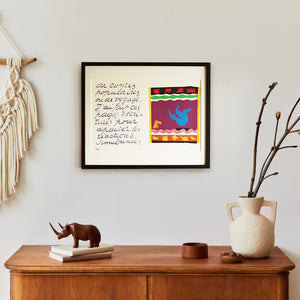 ou contes
populaires
ou de voyage.
J'ai fait ces
pages d'écri-
tures pour
apaiser les
réactions
simultanées